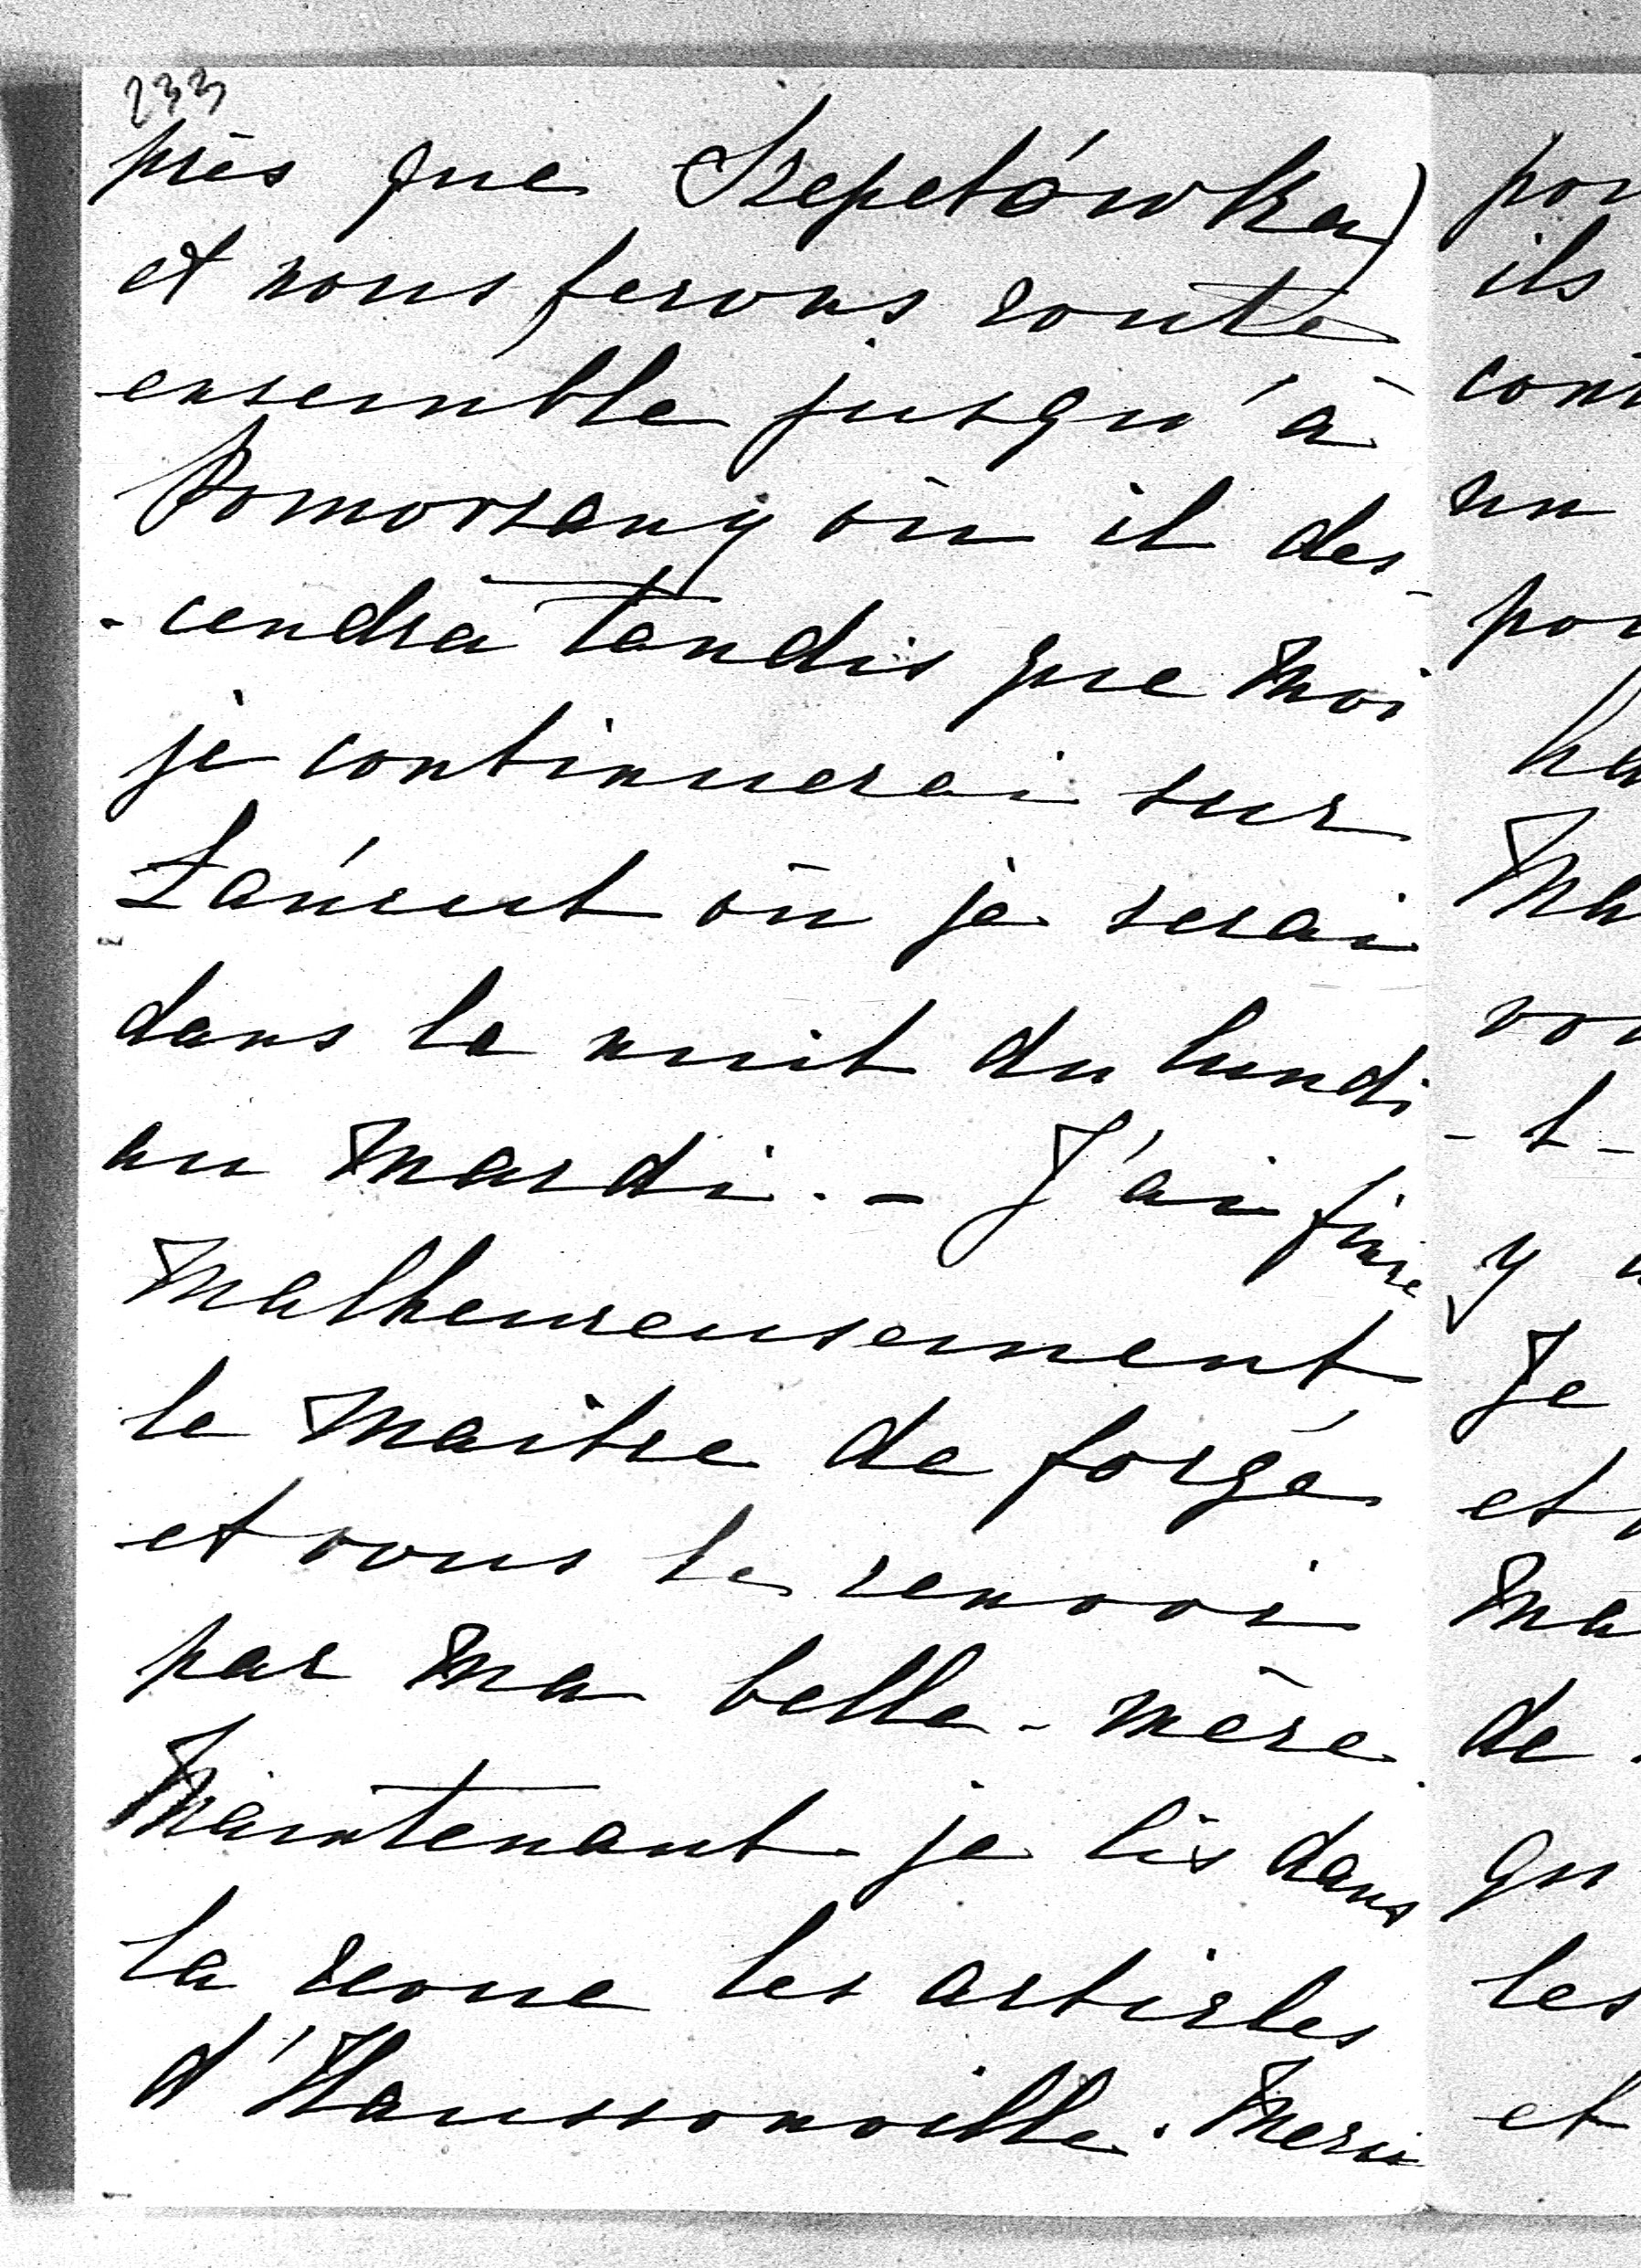 233
près que Szepetówka)
et nous ferons route
ensemble jusqu'à
Pomorzany où il des-
-cendra tandis que moi
je continuerai sur
Łańcut où je serai
dans la nuit du lundi
au mardi. - J'ai finie
malheureusement
le maitre de forge
et vous le renvoi
par ma belle-mère.
Maintenant je lis dans
la revue les articles
d'Haussonville. Merci
ils
un
Je
et
de
les
et